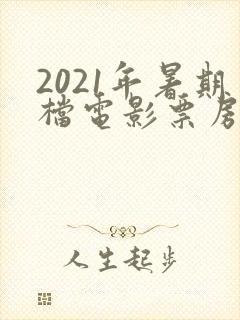 2021年暑期
檔電影票房
人生起步